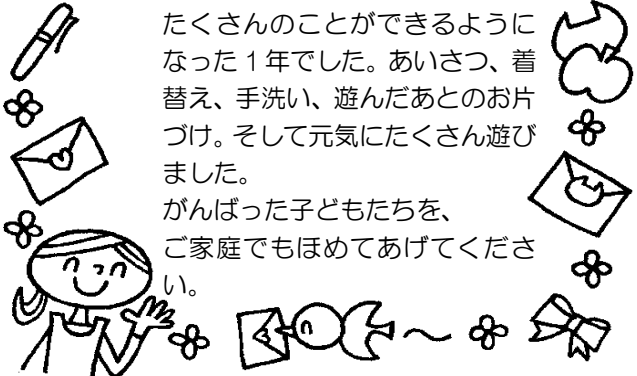 たくさんのことができるように
なった1年でした。あいさつ、着
替え、手洗い、遊んだあとのお片
づけ。そして元気にたくさん遊び
ました。
がんばった子どもたちを、
ご家庭でもほめてあげてくださ
い。